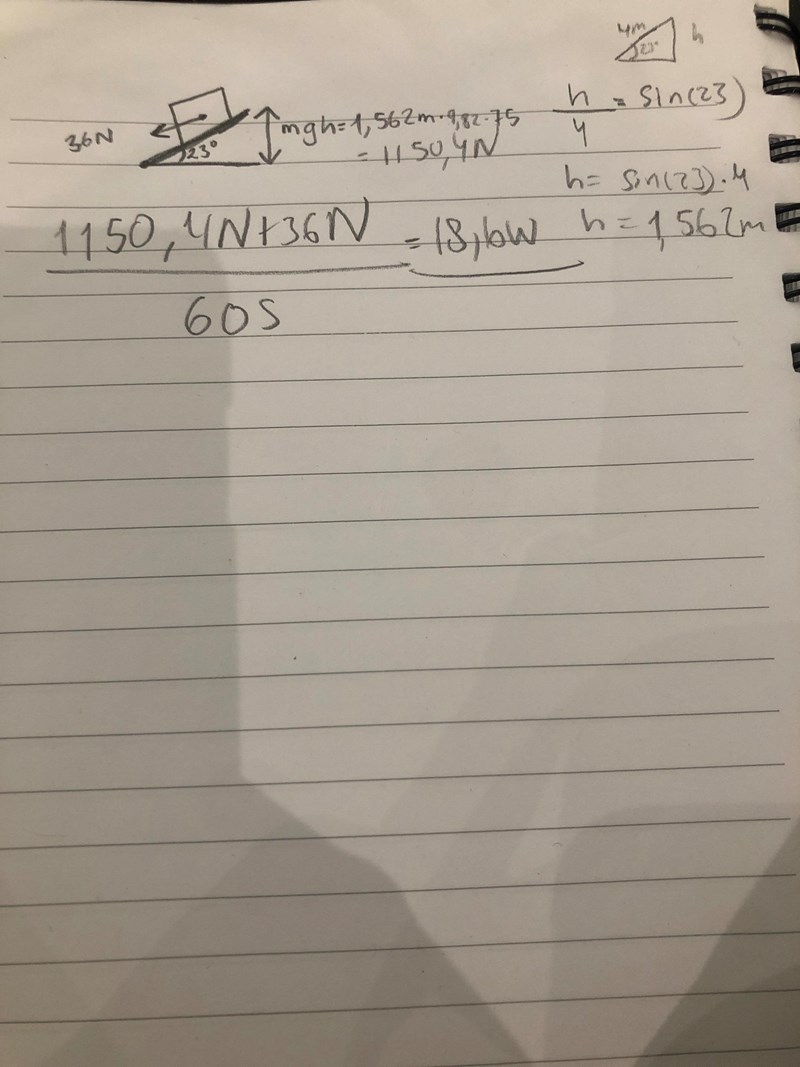 4m
23°
h
36N
23°
mgh=1,562m·9,82·75
=1150,4N
h/4 = sin(23)
h= sin(23)·4
h=1,562m
1150,4N+36N
=18,6W
60S